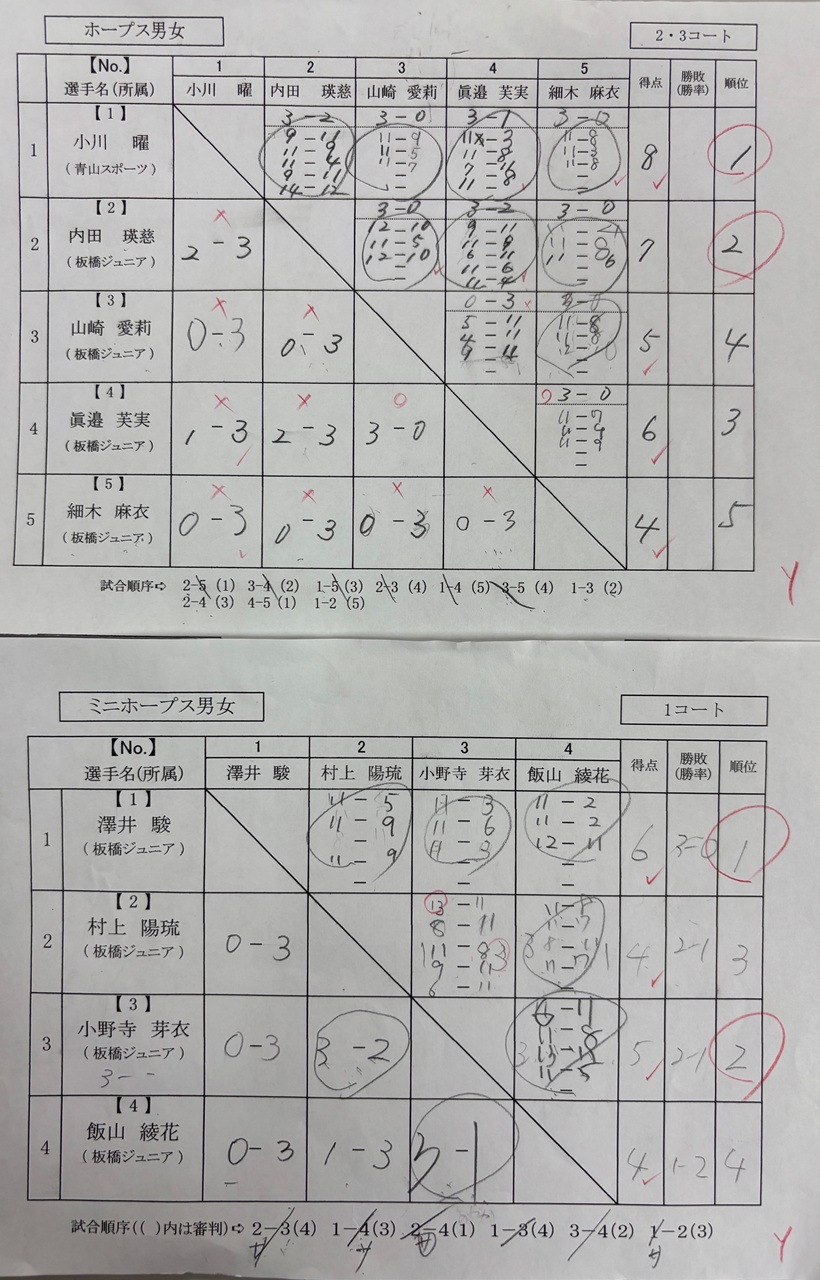 ホープス男女
2・3コート
【No.】 1 2 3 4 5 得点 勝敗 順位
選手名(所属) 小川 曜 内田 瑛慈 山崎 愛莉 眞邉 芙実 細木 麻衣 (勝率)
【1】 3-2 3-0 3-1 3-0
1 小川 曜 8 1
(青山スポーツ)
9-11 11-9 11-3 11-8
11-9 11-5 11-8 11-3
11-4 11-7 7-11 11-8
9-11 11-8
14-12
【2】 3-0 3-2 3-0
2 内田 瑛慈 2-3 7 2
(板橋ジュニア)
12-10 9-11
11-5 11-9 11-8
12-10 6-11 11-6
11-6
11-4
【3】 0-3
3 山崎 愛莉 0-3 0-3 5 4
(板橋ジュニア)
5-11 11-8
4-11 11-8
9-11
【4】 3-0
4 眞邉 芙実 1-3 2-3 3-0 6 3
(板橋ジュニア)
11-7
11-9
11-9
【5】
5 細木 麻衣 0-3 0-3 0-3 0-3 4 5
(板橋ジュニア)
試合順序⇨ 2-5 (1) 3-4 (2) 1-5 (3) 2-3 (4) 1-4 (5) 3-5 (4) 1-3 (2)
2-4 (3) 4-5 (1) 1-2 (5)
ミニホープス男女
1コート
【No.】 1 2 3 4 得点 勝敗 順位
選手名(所属) 澤井 駿 村上 陽琉 小野寺 芽衣 飯山 綾花 (勝率)
【1】
1 澤井 駿 6 3-0 1
(板橋ジュニア)
11-5 11-3 11-2
11-9 11-6 11-2
11-9 11-3 12-11
【2】
2 村上 陽琉 0-3 4 2-1 3
(板橋ジュニア)
13-11
8-11
11-8
9-11
6-11
【3】
3 小野寺 芽衣 0-3 3-2 5 2-1 2
(板橋ジュニア)
6-11
11-8
11-5
【4】
4 飯山 綾花 0-3 1-3 3-1 4 1-2 4
(板橋ジュニア)
試合順序(( )内は審判)⇨ 2-3(4) 1-4(3) 2-4(1) 1-3(4) 3-4(2) 1-2(3)